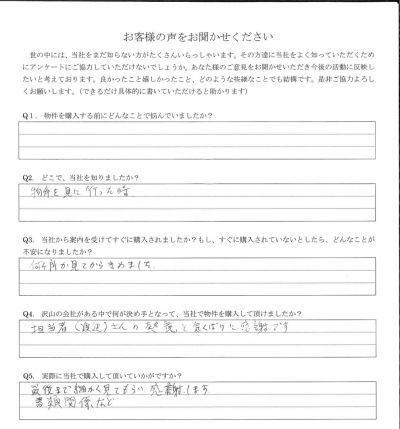 お客様の声をお聞かせください
世の中には、当社をまだ知らない方がたくさんいらっしゃいます。その方達に当社をよく知っていただくため
にアンケートにご協力していただけないでしょうか。あなた様のご意見をお聞かせいただき今後の活動に反映し
たいと考えております。良かったこと嬉しかったこと、どのような些細なことでも結構です。是非ご協力よろし
くお願いします。(できるだけ具体的に書いていただけると助かります)
Q1. 物件を購入する前にどんなことで悩んでいましたか?
Q2. どこで、当社を知りましたか?
物件を見に行った時
Q3. 当社から案内を受けてすぐに購入されましたか?もし、すぐに購入されていないとしたら、どんなことが
不安になりましたか?
何ヶ所か見てからきめました
Q4. 沢山の会社がある中で何が決め手となって、当社で物件を購入して頂けましたか?
担当者(渡辺)さんの 熱意と気くばりに感謝です
Q5. 実際に当社で購入して頂いていかがですか?
最後まで細かく見てもらい感謝します
書類関係など